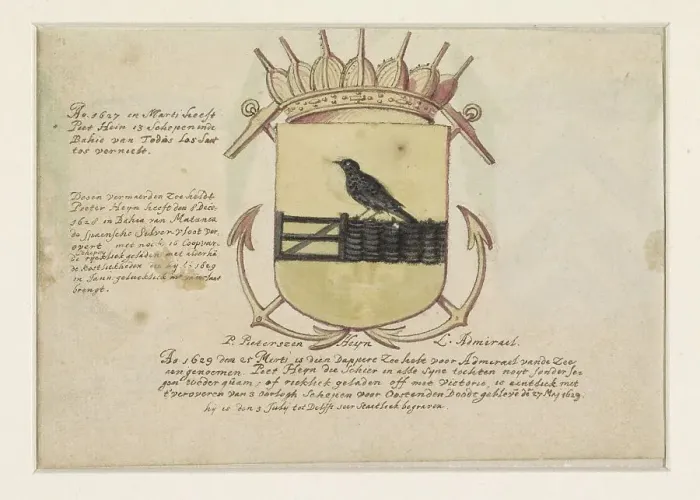 Ao. 1627 in Marti heeft
Piet Hein 13 Schepen inde
Bahie van Todos los San
tos vernielt.
Desen vermaerden Zee heldt
Peeter Heyn heeft den 8 Dece.
1628 in Bahia van Matanca
de Spaensche Silver vloot ver
overt met noch 16 Coopvar.
de rieklick geladen met
de kostlickheden 1629
in Janu. gelucklick
brengt.
P. Pietersen Heyn L. Admirael.
Ao 1629 den 25 Merti is dien Dappere Zee helt voor Admerael vande Zee
aen genoomen. Piet Heyn die Schier in alle syne tochten noyt sonder se,
gen weder quam; of rieklick geladen off met Victorie, is eintlick met
t'veroveren van 3 oorlogh Schepen voor Oostenden Doodt gebleve den 27 May 1629.
hij is den 3 Julij tot Delfft seer Staetlick begraven.